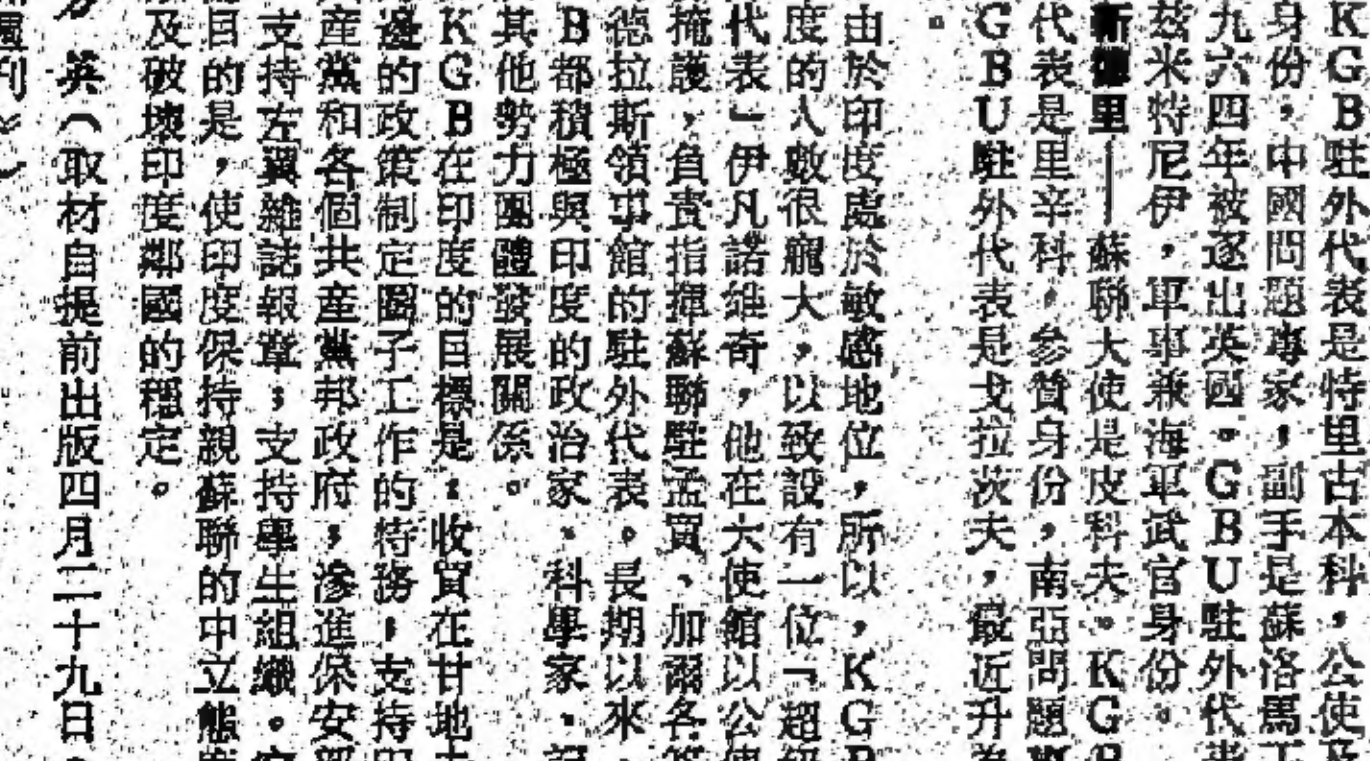 KGB駐外代表是特里古本科，公使及
身份，中國問題專家，副手是蘇洛馬丁
九六四年被逐出英國。GBU駐外代表
茲米特尼伊，軍事兼海軍武官身份。
新德里——蘇聯大使是皮科夫。KGB
代表是里辛科，參贊身份，南亞問題專
GBU駐外代表是戈拉茨夫，最近升為
。
由於印度處於敏感地位，所以，KGB
度的人數很龐大，以致設有一位「超級
代表」伊凡諾維奇，他在大使館以公使
掩護，負責指揮蘇聯駐孟買、加爾各答
德拉斯領事館的駐外代表。長期以來，
B都積極與印度的政治家、科學家、記
其他勢力團體發展關係。
KGB在印度的目標是：收買在甘地夫
邊的政策制定圈子工作的特務，支持印
產黨和各個共產黨邦政府，滲進保安部
支持左翼雜誌報章；支持學生組織。它
目的是，使印度保持親蘇聯的中立態度
及破壞印度鄰國的穩定。
英（取材自提前出版四月二十九日
週刊》）